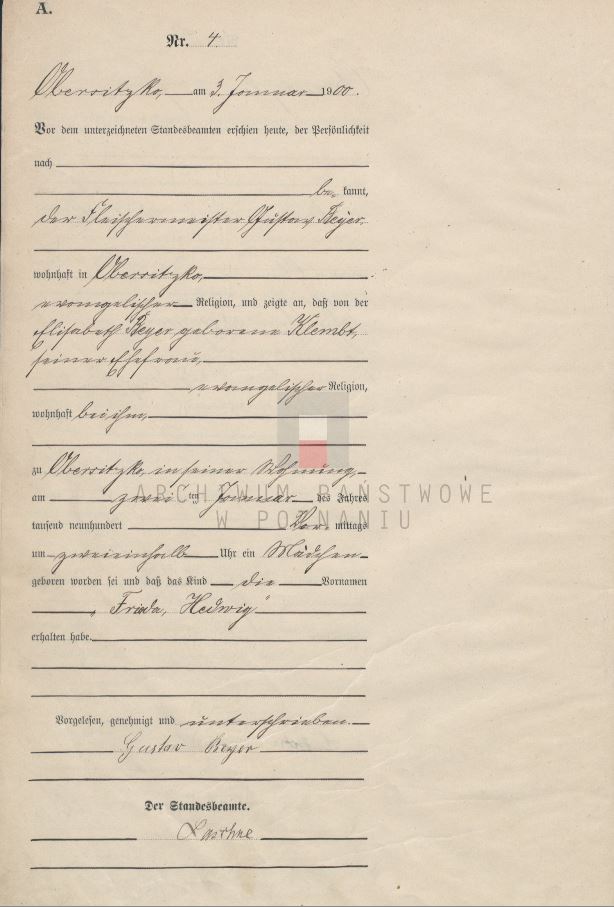 A.
Nr. 4
Obersitzko, am 3. Januar 1900.
Vor dem unterzeichneten Standesbeamten erschien heute, der Persönlichkeit
nach
be kannt,
der Fleischermeister Gustav Beyer
wohnhaft in Obersitzko,
evangelischer Religion, und zeigte an, daß von der
Elisabeth Beyer geborene Klembt,
seiner Ehefrau,
evangelischer Religion,
wohnhaft bei ihm,
zu Obersitzko, in seiner Wohnung,
am zwei ten Januar des Jahres
tausend neunhundert Vor mittags
um zweieinhalb Uhr ein Mädchen
geboren worden sei und daß das Kind die Vornamen
„Frieda, Hedwig"
erhalten habe.
Vorgelesen, genehmigt und unterschrieben.
Gustav Beyer
Der Standesbeamte.
ARCHIWUM PAŃSTWOWE
W POZNANIU